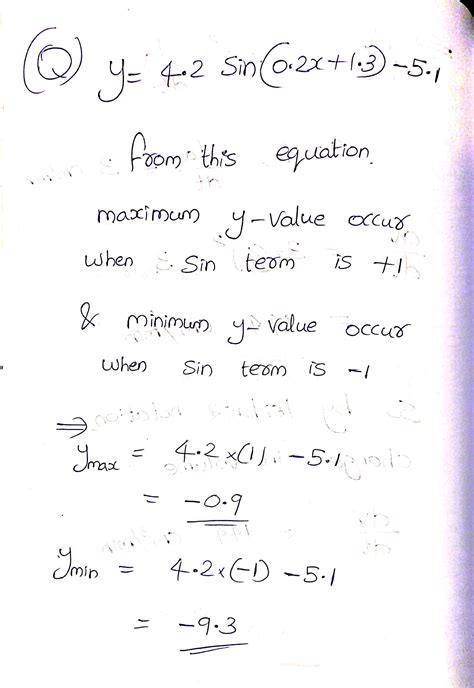 (Q) y = 4.2 sin(0.2x+1.3) -5.1
from this equation.
maximum y-value occur
when sin term is +1
& minimum y-value occur
when sin term is -1
⇒
ymax = 4.2 ×(1) - 5.1
= -0.9
ymin = 4.2×(-1) -5.1
= -9.3